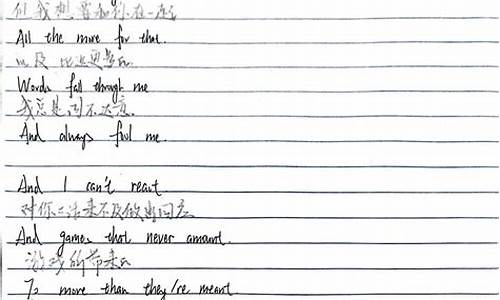 但我想要和你在一起
All the more for that.
以及比这更多的
Words fall through me
我总是词不达意.
And always fool me.
And I can't react.
对你 来不及做出回应
And games that never amount.
游戏所带来的
To more than they're meant.